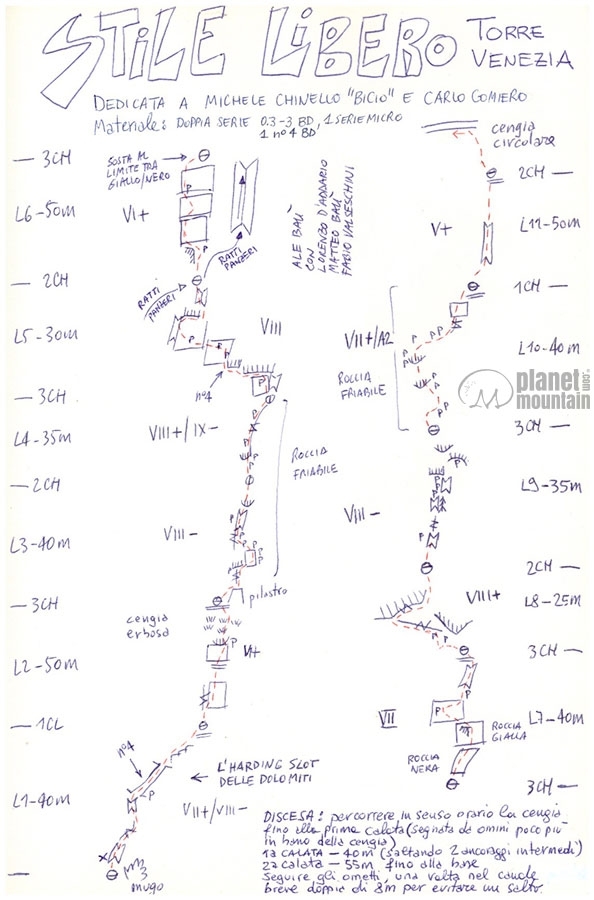 STILE LIBERO TORRE VENEZIA
DEDICATA A MICHELE CHINELLO "BICIO" E CARLO GOMIERO
Materiale: DOPPIA SERIE 0.3-3 BD, 1 SERIE MICRO
1 n°4 BD
— 3CH
SOSTA AL
LIMITE TRA
GIALLO/NERO
L6-50m
VI+
P
P
RATTI
PANZERI
ALE BAÙ
CON
LORENZO D'ADDARIO
MATTEO BAÙ
FABIO VALSESCHINI
— 2CH
RATTI
PANZERI
P
L5-30m
VIII
P
P
n°4
P
— 3CH
L4-35m
VIII+/IX-
P
P
ROCCIA
FRIABILE
— 2CH
VIII-
P
L3-40m
P
P
P
— 3CH
pilastro
cengia
erbosa
P
VI+
L2-50m
— 1CL
n°4
← L'HARDING SLOT
DELLE DOLOMITI
P
L1-40m
VII+/VIII-
—
mugo
cengia
circolare
2CH —
V+
L11-50m
1CH —
VII+/A2
P
P
L10-40m
ROCCIA
FRIABILE
P
P
P
3CH —
planet
mountain
.com
P
P
L9-35m
VIII-
P
P
2CH —
VIII+
L8-25m
P
P
3CH —
VII
P
L7-40m
ROCCIA
GIALLA
ROCCIA
NERA
3CH —
DISCESA: percorrere in senso orario la cengia
fino alla prima calata (segnata da omini poco più
in basso della cengia)
1a CALATA — 40m (saltando 2 ancoraggi intermedi)
2a calata — 55m fino alla base
Seguire gli ometti, una volta nel canale
breve doppia di 8m per evitare un salto.